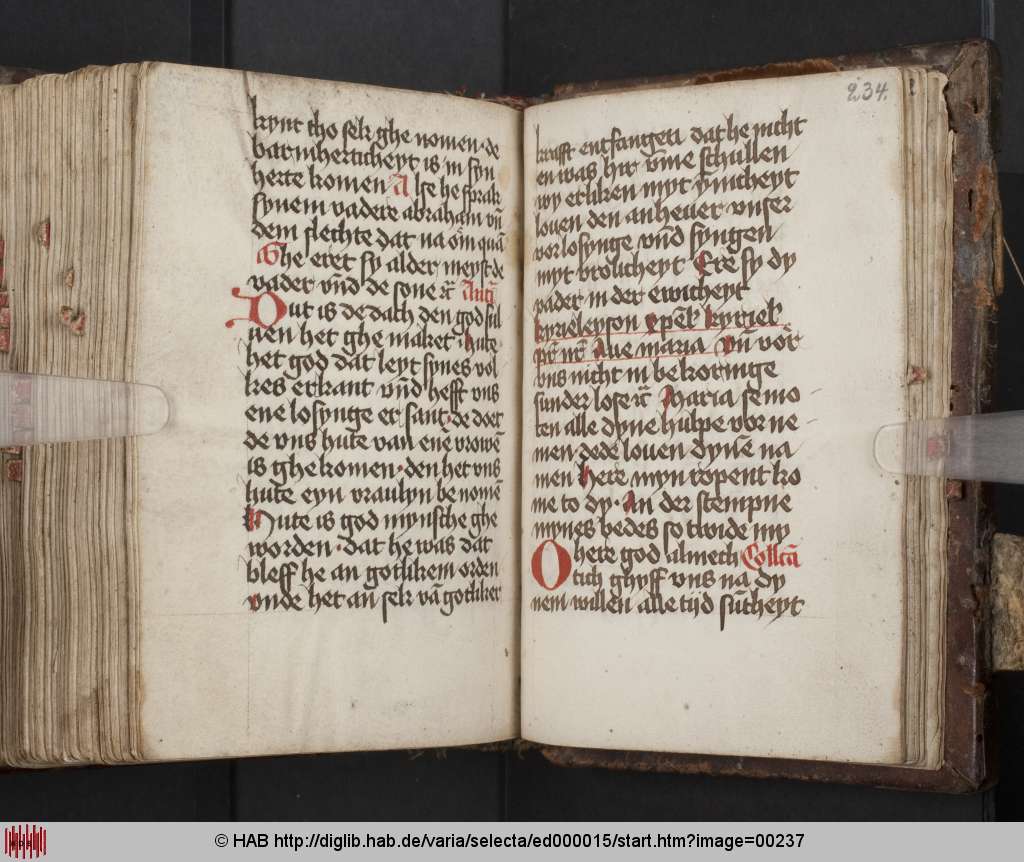 kynt tho sek ghe nomen · de
barmherticheyt is in syn
herte komen Alse he sprak
synem vadere abraham vn̄
dem slechte dat na om quā
Ghe eret sy alder meyst de
vader vnd de sone ec̄ Antī
Dut is de dach den god sul
uen het ghe maket · hute
het god dat leyt synes vol
kes erkant vnd hefft vns
ene losynge er sant · de doer
de vns hute van ene vrowē
is ghe komen · den het vns
hute eyn vraulyn be nomē
Hute is god mynsche ghe
worden · dat he was dat
bleff he an gotlikem orden
vnde het an sek vā gotliker
234.
krafft entfangen dat he nicht
en was hir vm̄e schullen
wy erliken myt ynicheyt
louen den anheuer vnser
vorlosynge vnd syngen
myt vrolicheyt Ere sy dy
vader in der ewicheyt
kyrieleyson xpēl kyriel
pr̄ nr̄ Aue maria Vn̄ vor
vns nicht in bekoringe
sunder lose ec̄ Maria se mo
ten alle dyne hulpe vor ne
men · dede louen dynē na
men Here myn ropent ko
me to dy · An der stempne
mynes bedes so twide my
O here god almech Collcā
tich ghyff vns na dy
nem willen alle tijd sūtheyt
© HAB http://diglib.hab.de/varia/selecta/ed000015/start.htm?image=00237